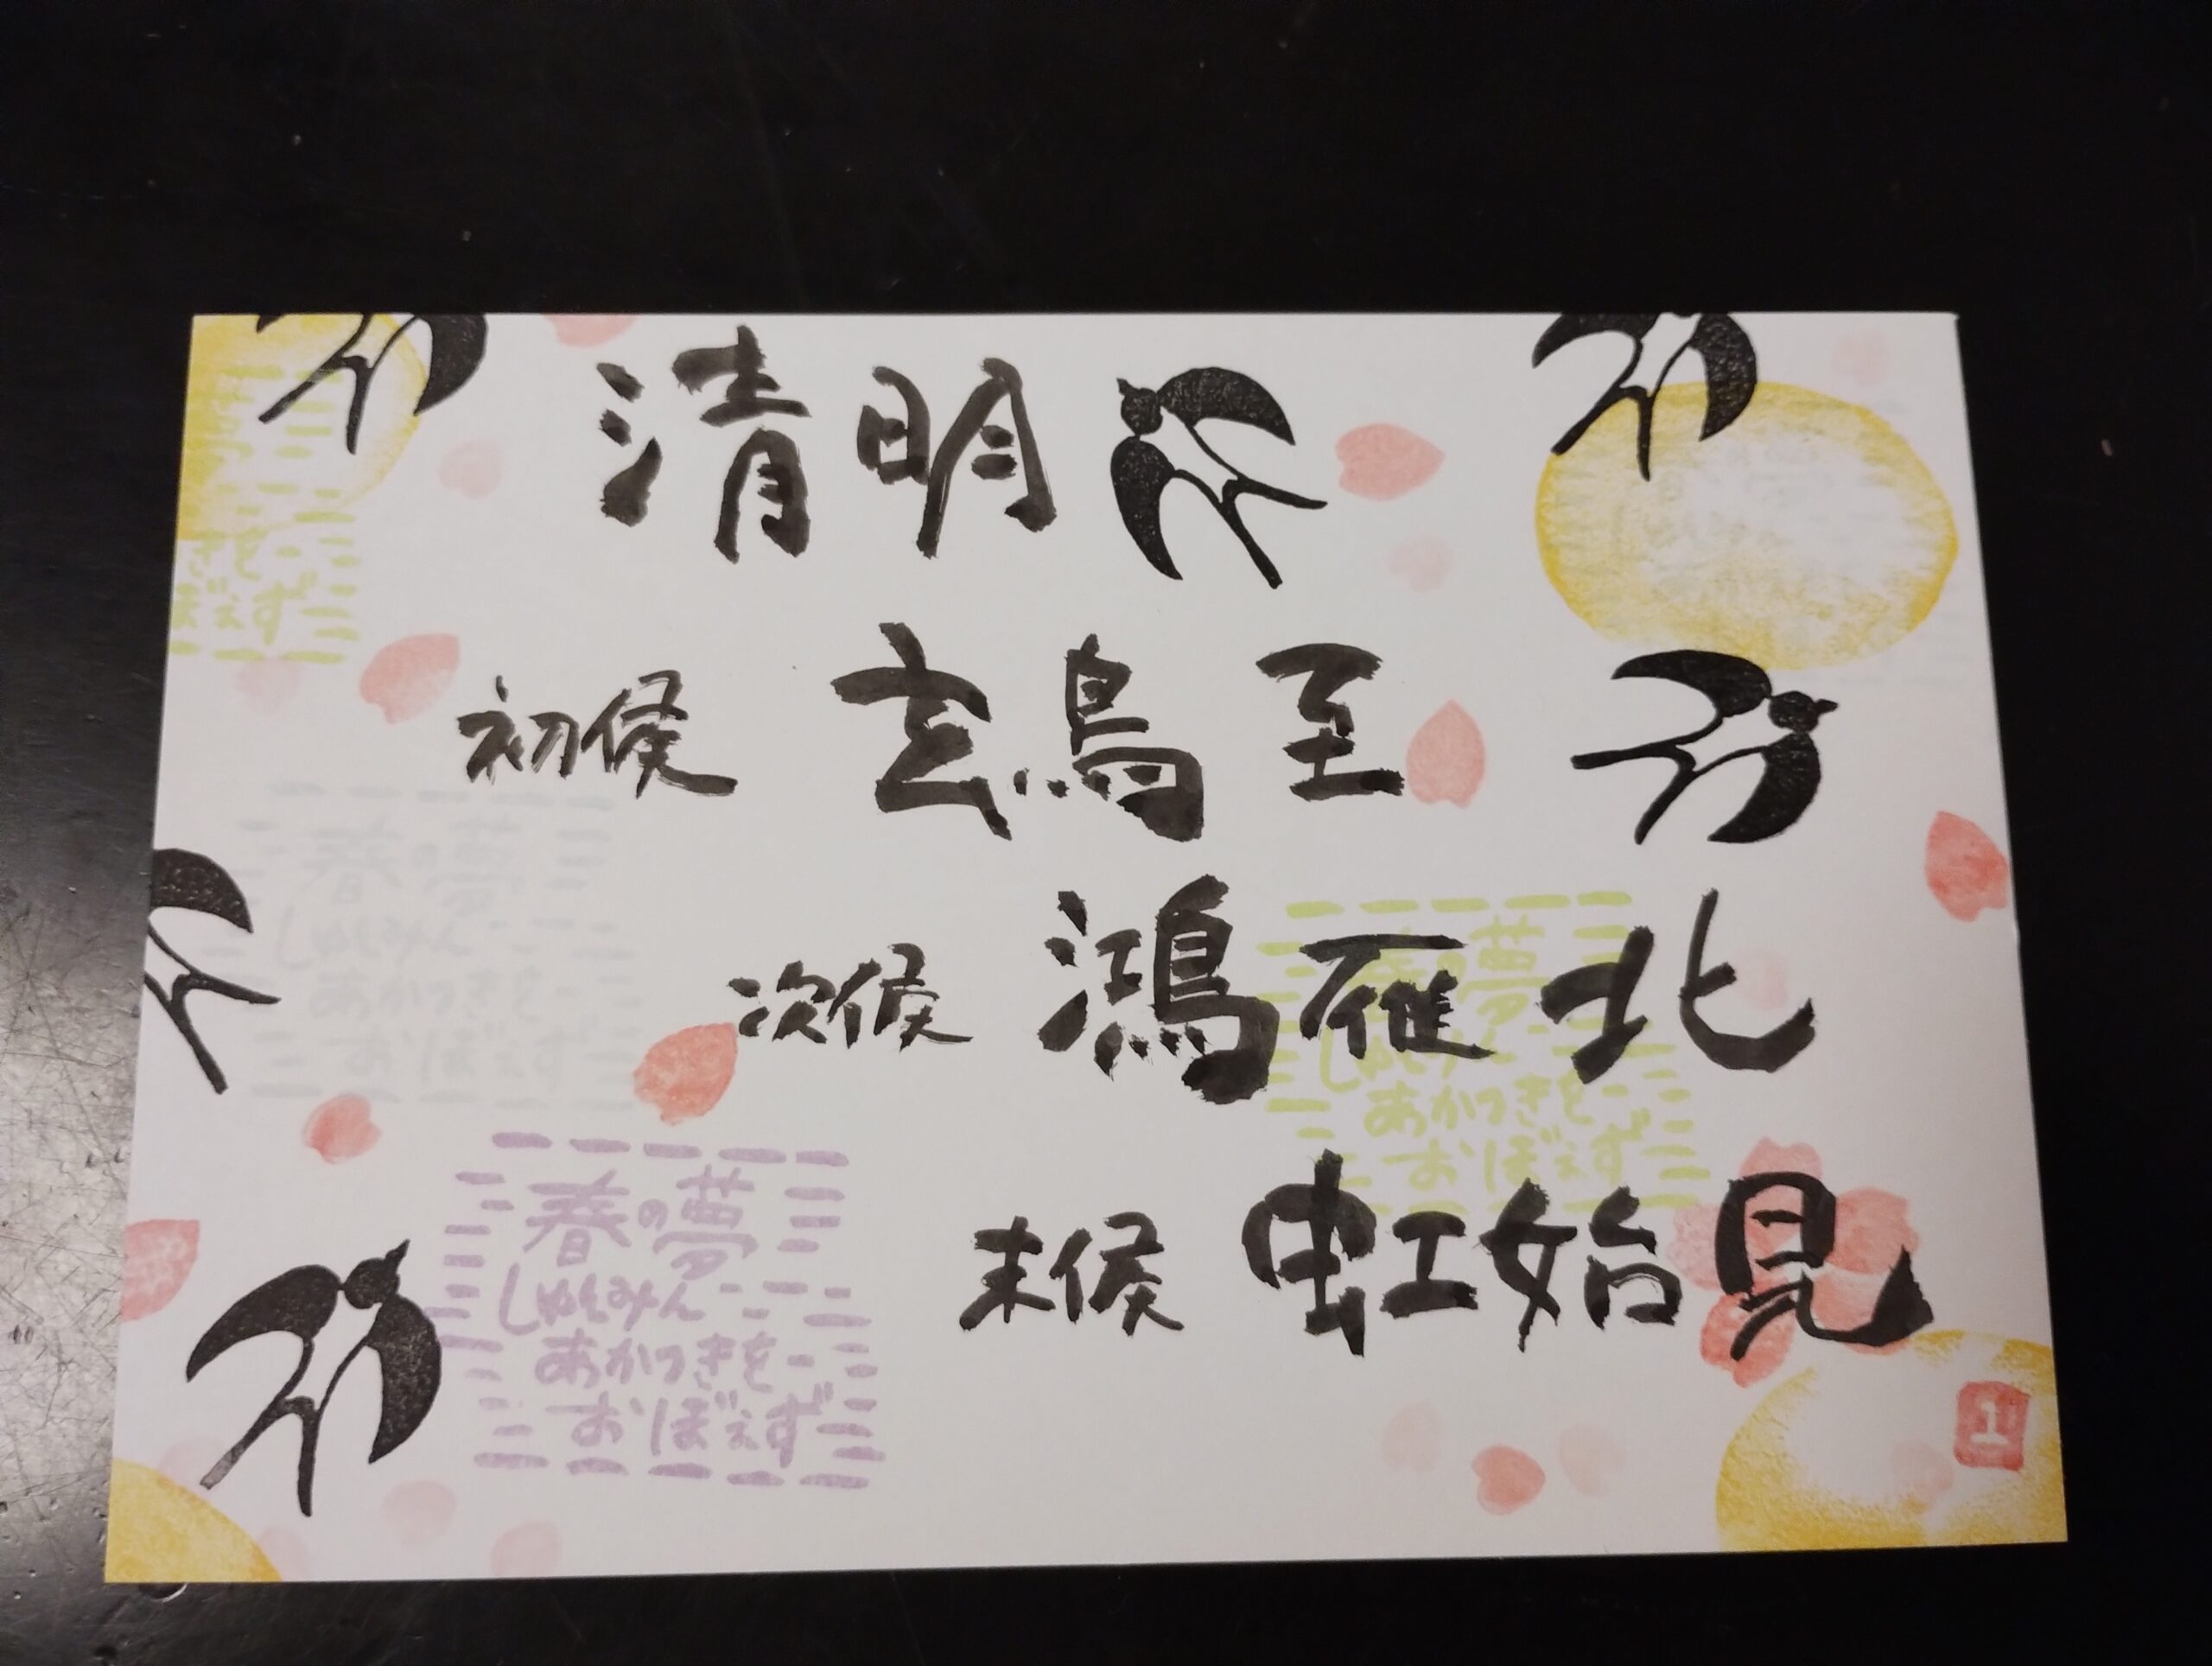 清明
初候 玄鳥至
次候 鴻雁北
末候 虹始見
春の夢
しゅんみん
あかつきを
おぼえず
春の夢
あかつきを
おぼえず
春の夢
しゅんみん
あかつきを
おぼえず